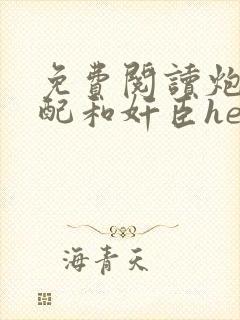 免費閱讀炮
配和奸臣he
海青天